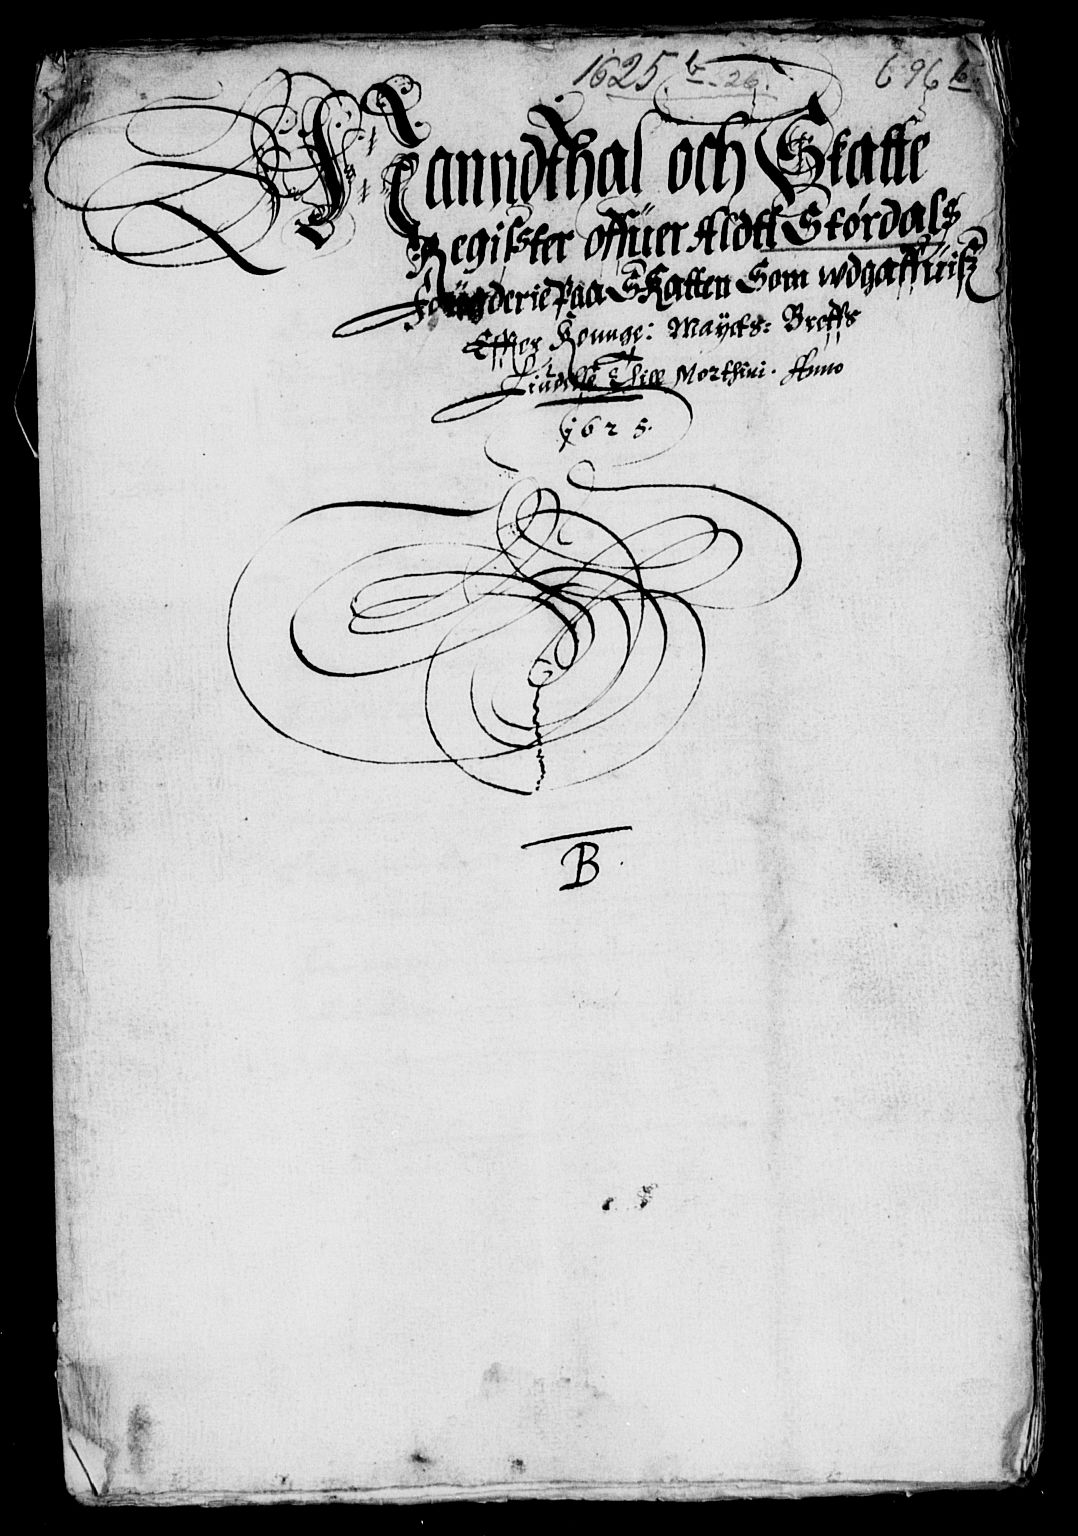 1625 b - 26. 696 b.
Manndthal och Skatte
Register offuer Aldtt Størdals
Fougderie Paa Skatten Som wdgaffuisz
Effter Konnge: Mayets: Breffs
Liudelse Thill Morthini. Anno
1625.
B